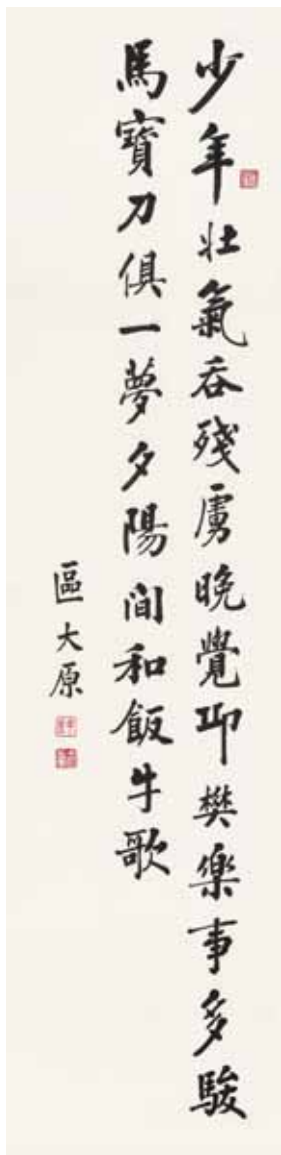 少年壯氣吞殘虜晚覺邱樊樂事多駿
馬寶刀俱一夢夕陽間和飯牛歌
區大原